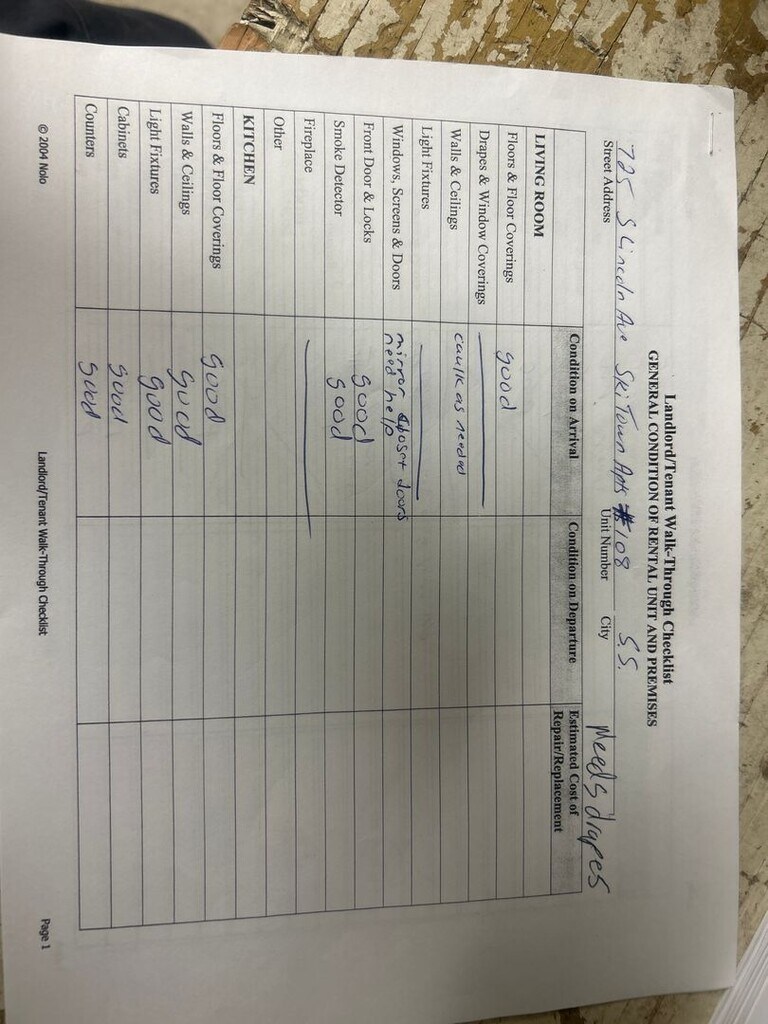 Landlord/Tenant Walk-Through Checklist
GENERAL CONDITION OF RENTAL UNIT AND PREMISES
725 S Lincoln Ave Ski Town Apts #108 S.S. Needs drapes
Street Address Unit Number City
Condition on Arrival Condition on Departure Estimated Cost of
Repair/Replacement
LIVING ROOM
Floors & Floor Coverings good
Drapes & Window Coverings
Walls & Ceilings caulk as needed
Light Fixtures
Windows, Screens & Doors mirror closet doors
need help
Front Door & Locks good
Smoke Detector good
Fireplace
Other
KITCHEN
Floors & Floor Coverings good
Walls & Ceilings good
Light Fixtures good
Cabinets good
Counters good
© 2004 Nolo Landlord/Tenant Walk-Through Checklist Page 1